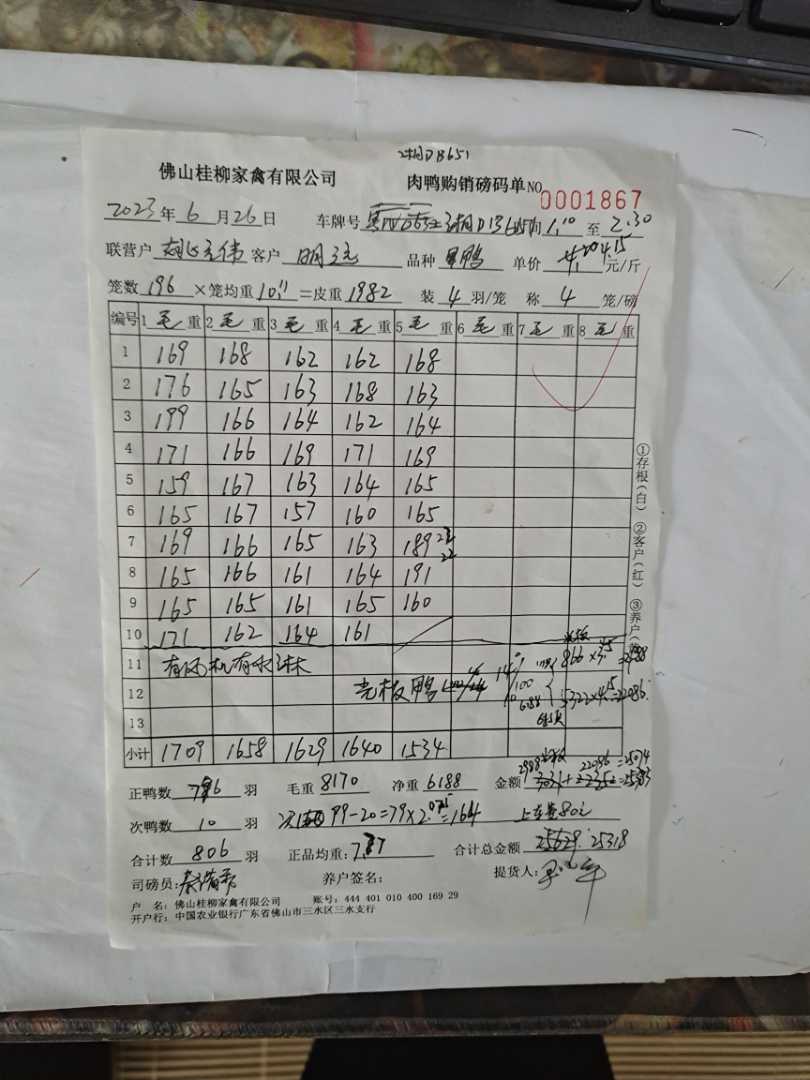 佛山桂柳家禽有限公司 肉鸭购销磅码单 NO 0001867
2023年6月26日 车牌号 1.10 至 2.30
联营户 客户 品种 鸭 单价 4.15 元/斤
笼数 196 ×笼均重 10.11 =皮重 1982 装 4 羽/笼 称 4 笼/磅
编号 1 毛重 2 毛重 3 毛重 4 毛重 5 毛重 6 毛重 7 毛重 8 毛重
1 169 168 162 162 168
2 176 165 163 168 163
3 199 166 164 162 164
4 171 166 169 171 169
5 159 167 163 164 165
6 165 167 157 160 165
7 169 166 165 163 189
8 165 166 161 164 191
9 165 165 161 165 160
10 171 162 164 161
11 866×3.45=2988
12 光板鸭 14% 5322×4.15=22086
13
小计 1709 1658 1629 1640 1534
2988 22086=25074
正鸭数 796 羽 毛重 8170 净重 6188 金额
次鸭数 10 羽 99-20=79×2.075=164 上车费80元
合计数 806 羽 正品均重: 7.77 合计总金额 25318
司磅员: 养户签名: 提货人:
户 名: 佛山桂柳家禽有限公司 账号: 444 401 010 400 169 29
开户行: 中国农业银行广东省佛山市三水区三水支行
①存根(白) ②客户(红) ③养户